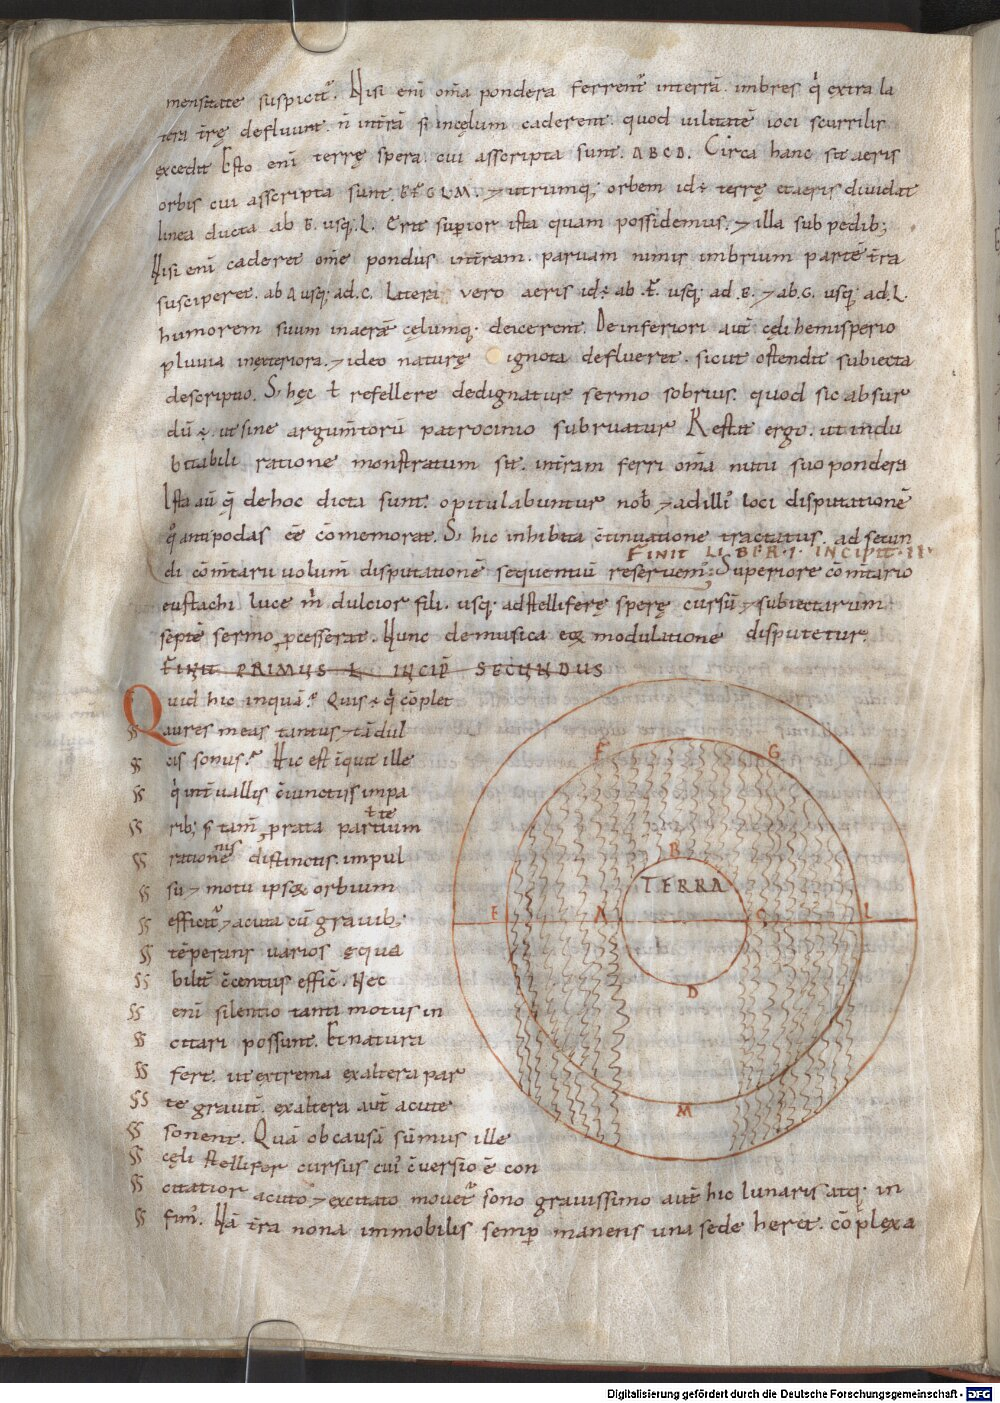 mensitate suspicit᷑. Nisi enī om̄a pondera ferrent᷑ interrā. imbres q̇ extra la
tera t̄rę defluunt. n̄ int̄rā s; incęlum caderent. quod uilitatē ioci scurrilis
excedit Esto enī terrę spera. cui asscripta sunt. A B C D. Circa hanc sit aeris
orbis cui asscripta sunt. E F G L M. ⁊ utrumq; orbem id ÷ terrę et aeris diuidat
linea ducta ab E. usq; L. Erit sup̄ior ista quam possidemus. ⁊ illa sub pedib;
Nisi enī caderet om̄e pondus int̄ram. paruam nimis imbrium partē t̄ra
susciperet. ab A usq; ad. C. Latera vero aeris id ÷ ab .F. usq; ad .E. ⁊ ab .G. usq; ad .L.
humorem suum inaerē cęlumq; deicerent. De inferiori aut̄ cęli hemisperio
pluuia inexteriora. ⁊ ideo naturę ignota deflueret. sicut ostendit subiecta
descriptio. S; hęc ł refellere dedignatur sermo sobrius. quod sic absur
dū ÷. ut sine argum̄torū patrocinio subruatur Restat ergo. ut indu
bitabili ratione monstratum sit. int̄ram ferri om̄a nutu suo pondera
Ista aū q̄ de hoc dicta sunt. opitulabuntur nob̄ ⁊ ad illi᷒ loci disputationē
q° antipodas eē cōmemorat. S; hic inhibita c̄tinuatione tractatus. ad secun
FINIT LIBER · I · INCIPIT · II ·
di cōm̄tarii uolum̄ disputationē sequentiū reseruem᷒; Superiore cōm̄tario
eustachi luce m̄ dulcior fili. usq; ad stelliferę sperę cursū ⁊ subiectarum
septē sermo ꝓcesserat. Nunc de musica eaꝝ modulatione disputetur.
FINIT PRIMUS L INCIP̄ SECUNDUS
Quid hic inquā? Quis ÷ q̇ cōplet
aures meas tantus ⁊ tā dul
cis sonus? Hic est īquit ille
q̇ int̄uallis c̄iunctis impa
rib; s; tam̄ ꝓ rata partium
ł te
ratione distinctus. impul
nis
su ⁊ motu ipsoꝝ orbium
efficit᷑ ⁊ acuta cū grauib;
tēperans uarios ęqua
bilit̄ c̄centus effic̄. Nec
enī silentio tanti motus in
citari possunt. Et natura
fert. ut extrema ex altera par
te grauit̄. ex altera aut̄ acute
sonent. Quā ob causā sūmus ille
cęli stellifer cursus cui᷒ c̄uersio ē con
citatior acuto ⁊ excitato mouet᷑ sono grauissimo aut̄ hic lunaris atq; in
fim᷒. Nā t̄ra nona immobilis semp̄ manens una sede heret. cōplexa
F G
B
TERRA
E A C L
D
M
Digitalisierung gefördert durch die Deutsche Forschungsgemeinschaft - DFG